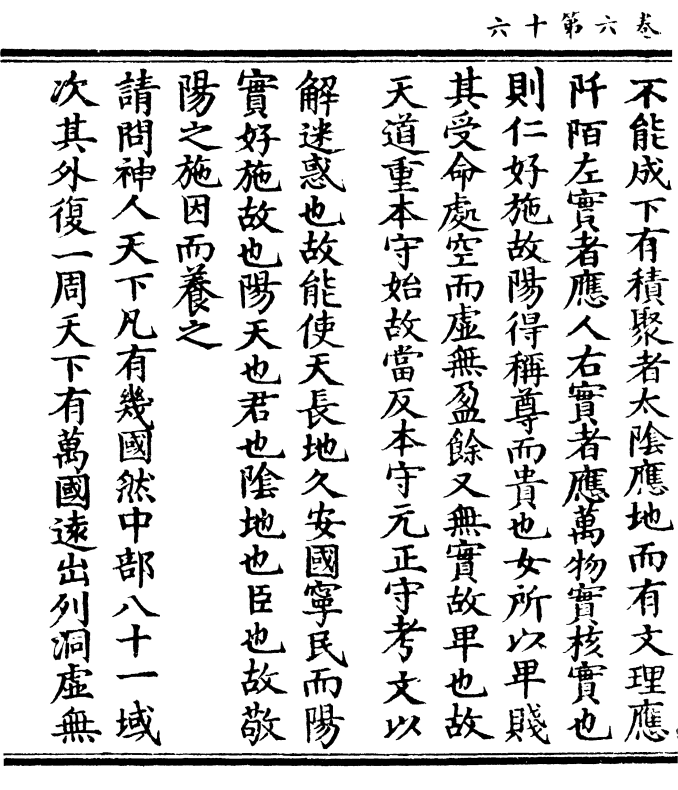 卷六第十六
不能成下有積聚者太陰應地而有文理應
阡陌左實者應人右實者應萬物實核實也
則仁好施故陽得稱尊而貴也女所以卑賤
其受命處空而虛無盈餘又無實故卑也故
天道重本守始故當反本守元正守考文以
解迷惑也故能使天長地久安國寧民而陽
實好施故也陽天也君也陰地也臣也故敬
陽之施因而養之
請問神人天下凡有幾國然中部八十一域
次其外復一周天下有萬國遠出列洞虛無